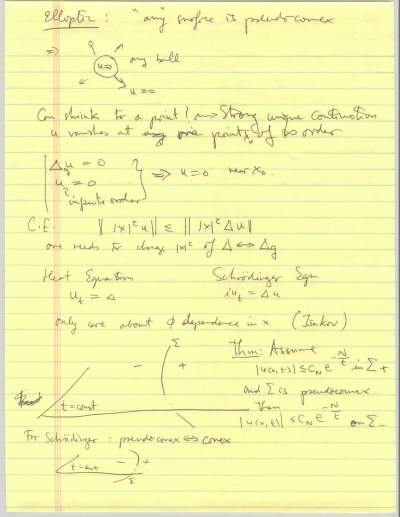 Elliptic: "any" surface is pseudoconvex
⇒ any ball
u=0
u=0
Can shrink to a point? ⇒ Strong unique continuation
u vanishes at point x₀ of ∞ order
Δ_g u = 0
u = 0
infinite order
⇒ u=0 near x₀.
C.E. || |x|^τ u || ≤ || |x|^τ Δu ||
one needs to change |x|^τ if Δ ⟺ Δ_g
Heat Equation
u_t = Δ
Schrödinger Eqn
iu_t = Δu
only care about ϕ dependence in x (Isakov)
Σ
- +
t = const
Thm: Assume
|u(x,t)| ≤ C_N e^{-N/t} in Σ+
and Σ is pseudoconvex
Then
|u(x,t)| ≤ C_N e^{-N/t} on Σ-
For Schrödinger: pseudoconvex ⟺ convex
t = const - +
Σ